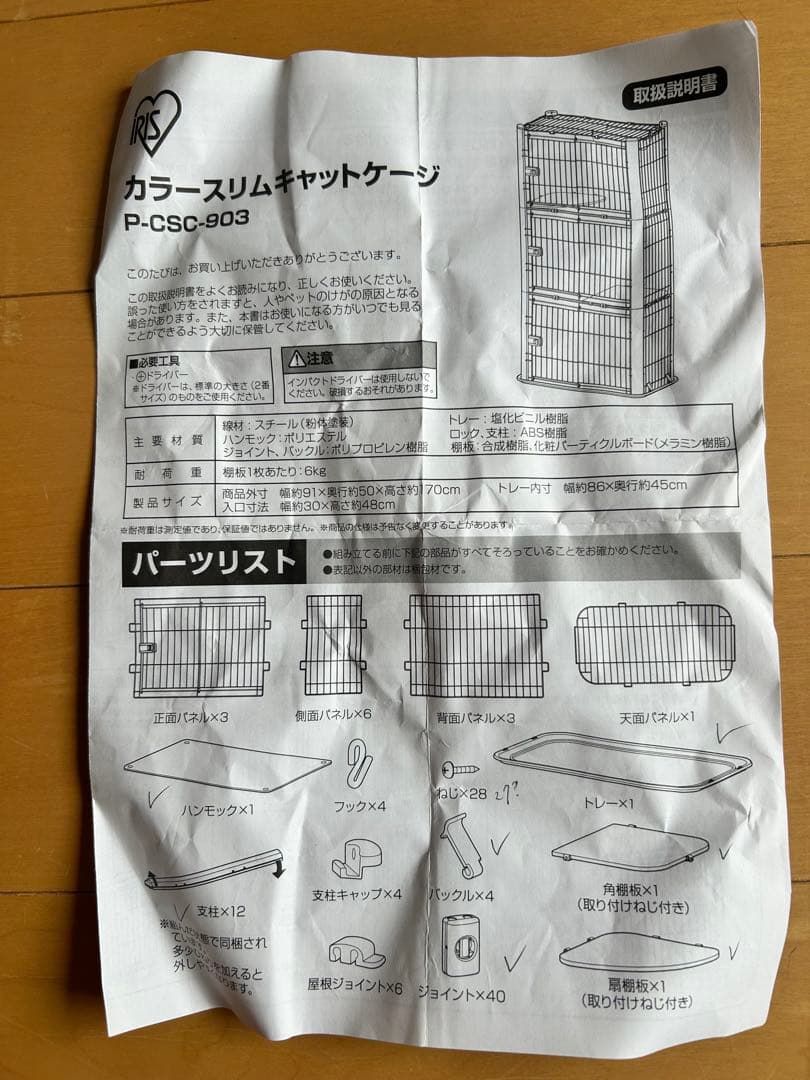 IRIS
取扱説明書
カラースリムキャットケージ
P-CSC-903
このたびは、お買い上げいただきありがとうございます。
この取扱説明書をよくお読みになり、正しくお使いください。
誤った使い方をされますと、人やペットのけがの原因となる
場合があります。また、本書はお使いになる方がいつでも見る
ことができるよう大切に保管してください。
■必要工具
・⊕ドライバー
※ドライバーは、標準の大きさ(2番
サイズ)のものをご使用ください。
⚠注意
インパクトドライバーは使用しないで
ください。破損するおそれがあります。
主要材質
線材:スチール(粉体塗装)
ハンモック:ポリエステル
ジョイント、バックル:ポリプロピレン樹脂
トレー:塩化ビニル樹脂
ロック、支柱:ABS樹脂
棚板:合成樹脂、化粧パーティクルボード(メラミン樹脂)
耐荷重 棚板1枚あたり:6kg
製品サイズ
商品外寸 幅約91×奥行約50×高さ約170cm トレー内寸 幅約86×奥行約45cm
入口寸法 幅約30×高さ約48cm
※耐荷重は測定値であり、保証値ではありません。※商品の仕様は予告なく変更することがあります。
パーツリスト
●組み立てる前に下記の部品がすべてそろっていることをお確かめください。
●表記以外の部材は梱包材です。
正面パネル×3 側面パネル×6 背面パネル×3 天面パネル×1
ハンモック×1 フック×4 ねじ×28 27? トレー×1
支柱×12 支柱キャップ×4 バックル×4 角棚板×1
(取り付けねじ付き)
多少
外しや
屋根ジョイント×6 ジョイント×40 扇棚板×1
(取り付けねじ付き)